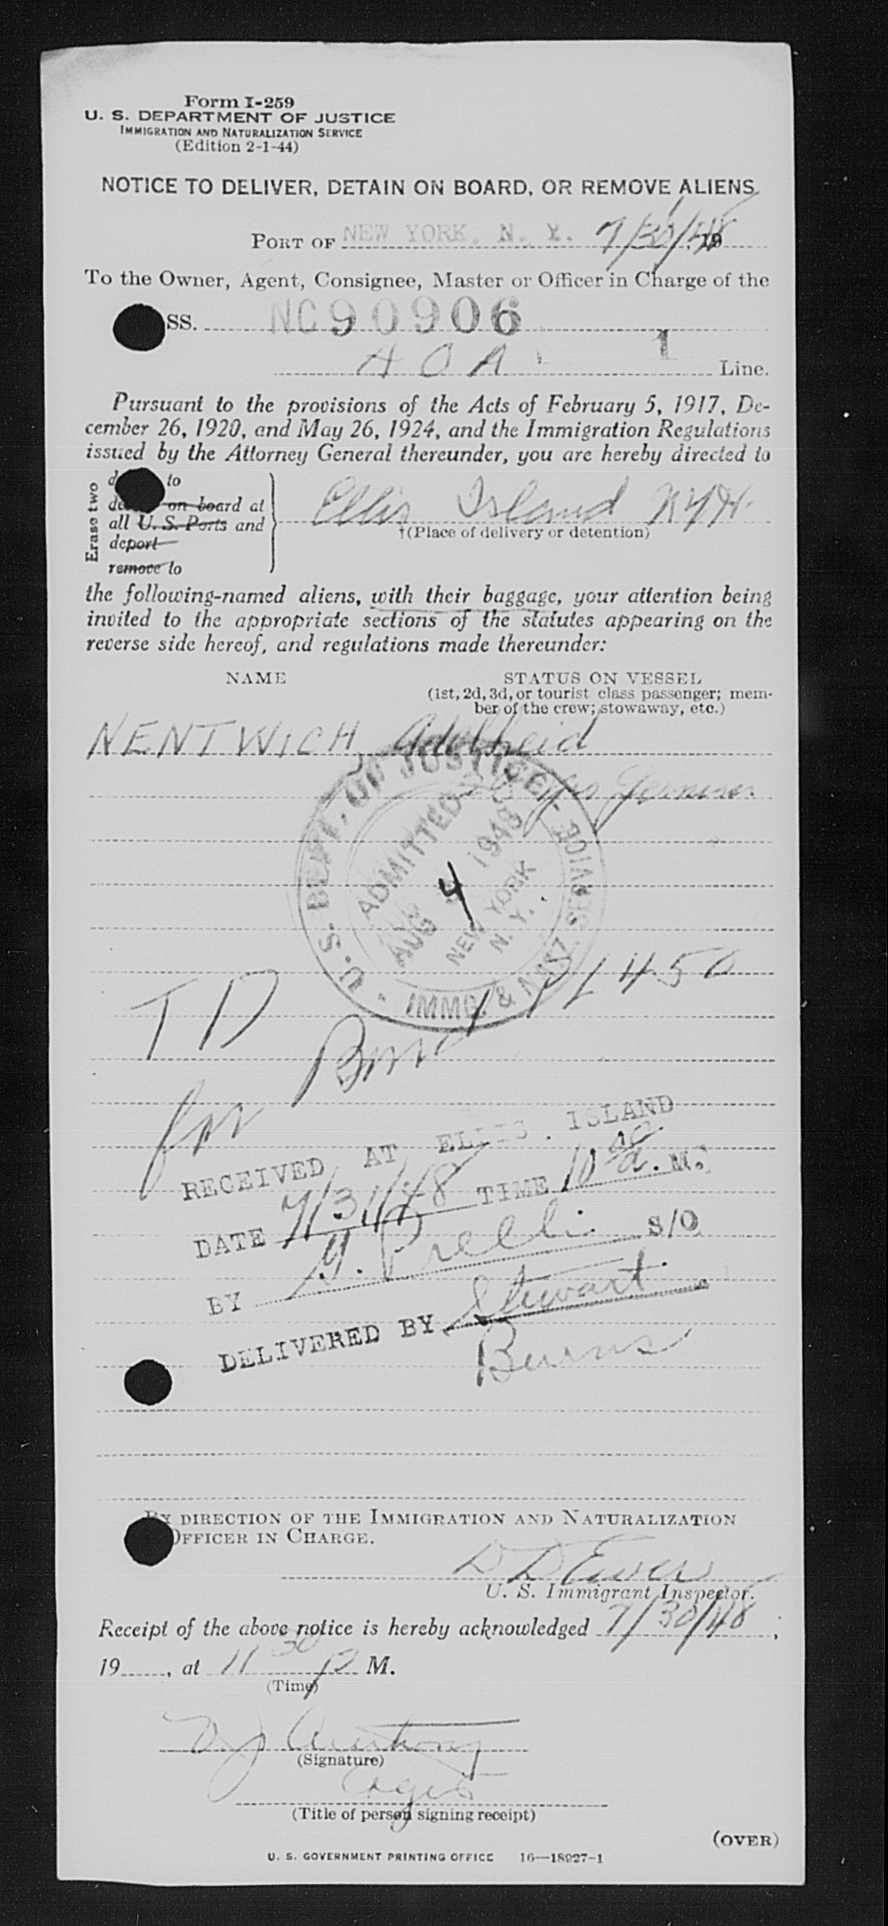 Form I-259
U. S. DEPARTMENT OF JUSTICE
IMMIGRATION AND NATURALIZATION SERVICE
(Edition 2-1-44)
NOTICE TO DELIVER, DETAIN ON BOARD, OR REMOVE ALIENS
PORT OF NEW YORK, N. Y. 7/30/48 19
To the Owner, Agent, Consignee, Master or Officer in Charge of the
SS. NC90906
A O A 1 Line.
Pursuant to the provisions of the Acts of February 5, 1917, De-
cember 26, 1920, and May 26, 1924, and the Immigration Regulations
issued by the Attorney General thereunder, you are hereby directed to
Erase two
to
on board at
all U. S. Ports and
deport
remove to
Ellis Island NYH
†(Place of delivery or detention)
the following-named aliens, with their baggage, your attention being
invited to the appropriate sections of the statutes appearing on the
reverse side hereof, and regulations made thereunder:
NAME STATUS ON VESSEL
(1st, 2d, 3d, or tourist class passenger; mem-
ber of the crew; stowaway, etc.)
NENTWICH, Adelheid
yrs German
U. S. DEPT. OF JUSTICE
IMMG. & NATZ. SERVICE
ADMITTED
AUG 1948
4
NEW YORK
N. Y.
TD
for Bond PL 450
RECEIVED AT ELLIS ISLAND
DATE 7/31/48 TIME 10 a. M.
BY G. Prelli S/O
DELIVERED BY Stewart
Burns
BY DIRECTION OF THE IMMIGRATION AND NATURALIZATION
OFFICER IN CHARGE.
D D Ewen
U. S. Immigrant Inspector.
Receipt of the above notice is hereby acknowledged 7/30/48,
19......, at 11 30 p M.
(Time)
Anthony
(Signature)
Agt
(Title of person signing receipt)
(OVER)
U. S. GOVERNMENT PRINTING OFFICE 16—18927-1